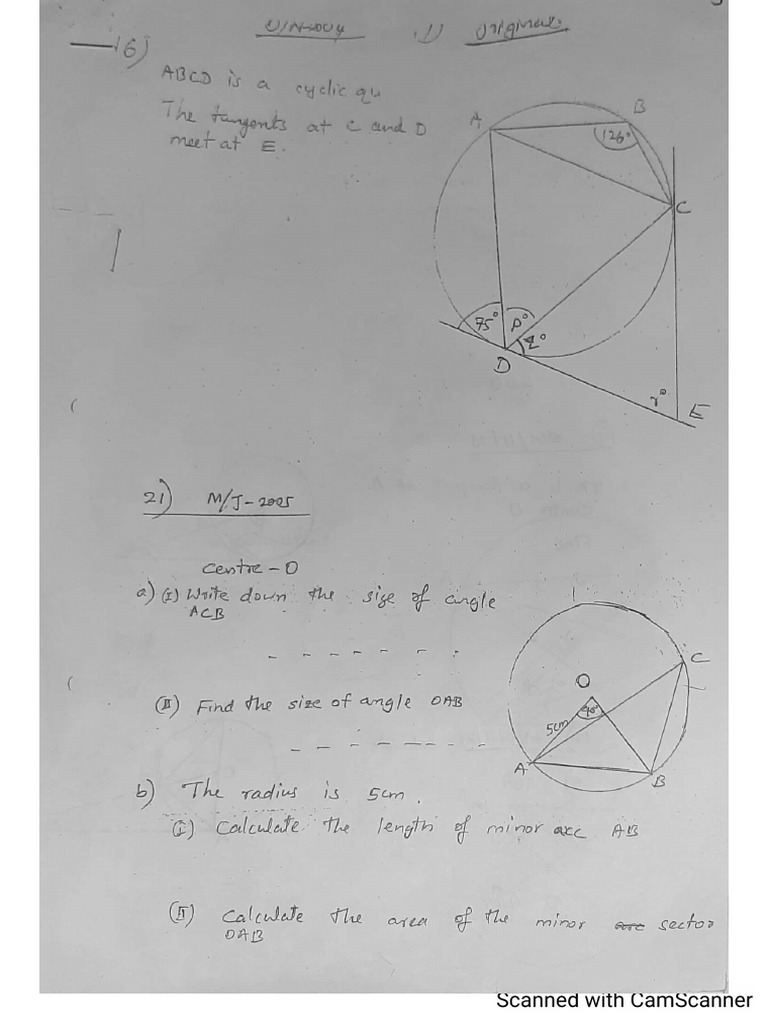 O/N-2004 1) Original.
16)
ABCD is a cyclic qu
The tangents at C and D
meet at E.
A
B
126°
C
75°
p°
q°
D
r°
E
21) M/J-2005
Centre - O
a) (I) Write down the size of angle
ACB
(II) Find the size of angle OAB
b) The radius is 5cm.
(I) Calculate the length of minor arc AB
(II) Calculate the area of the minor arc sector
OAB
O
C
5cm
A
B
Scanned with CamScanner